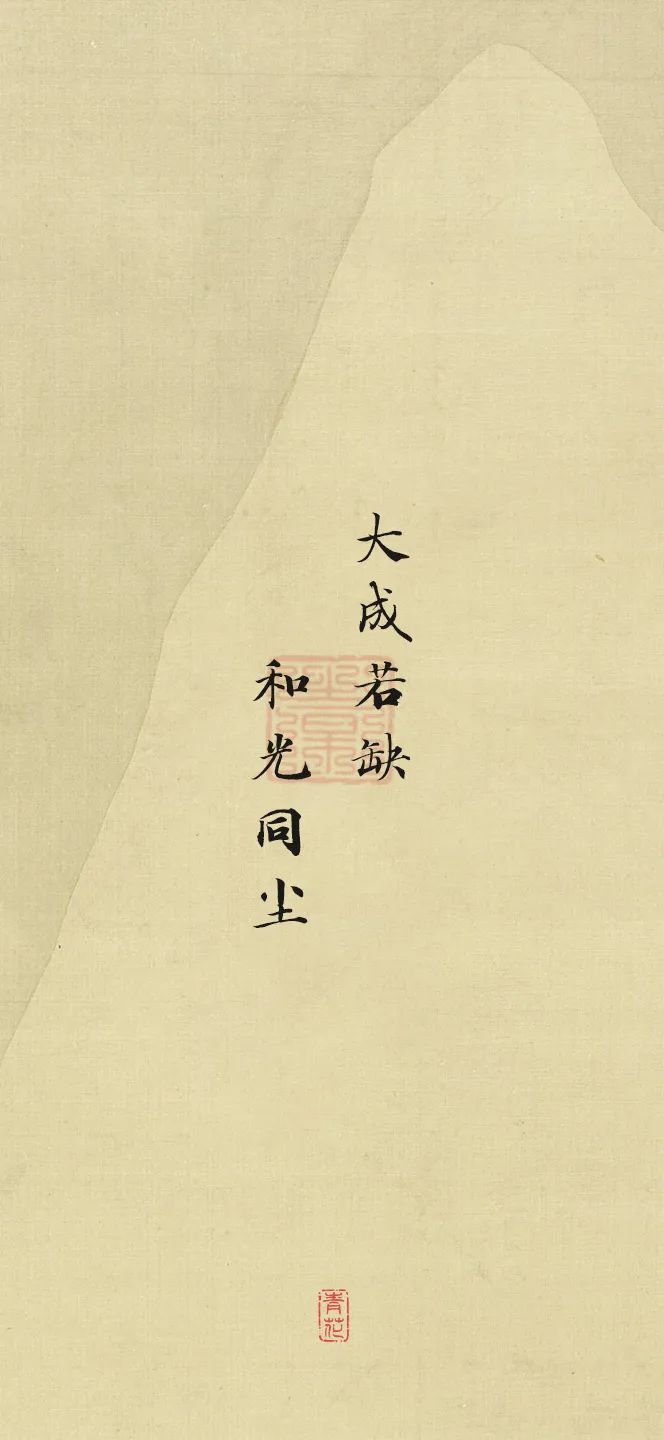 大成若缺
和光同尘
青花